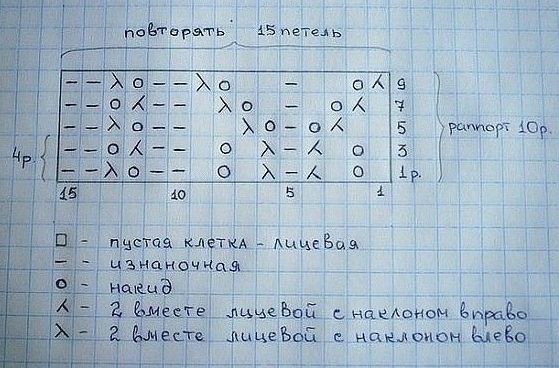 повторять 15 петель
— — λ о — — λ о — о ⅄ 9
— — о ⅄ — — λ о — о ⅄ 7
— — λ о — — λ о — о ⅄ 5
— — о ⅄ — — о λ — ⅄ о 3
— — λ о — — о λ — ⅄ о 1р.
4р.
раппорт 10р.
15 10 5 1
□ - пустая клетка - лицевая
— - изнаночная
о - накид
⅄ - 2 вместе лицевой с наклоном вправо
λ - 2 вместе лицевой с наклоном влево